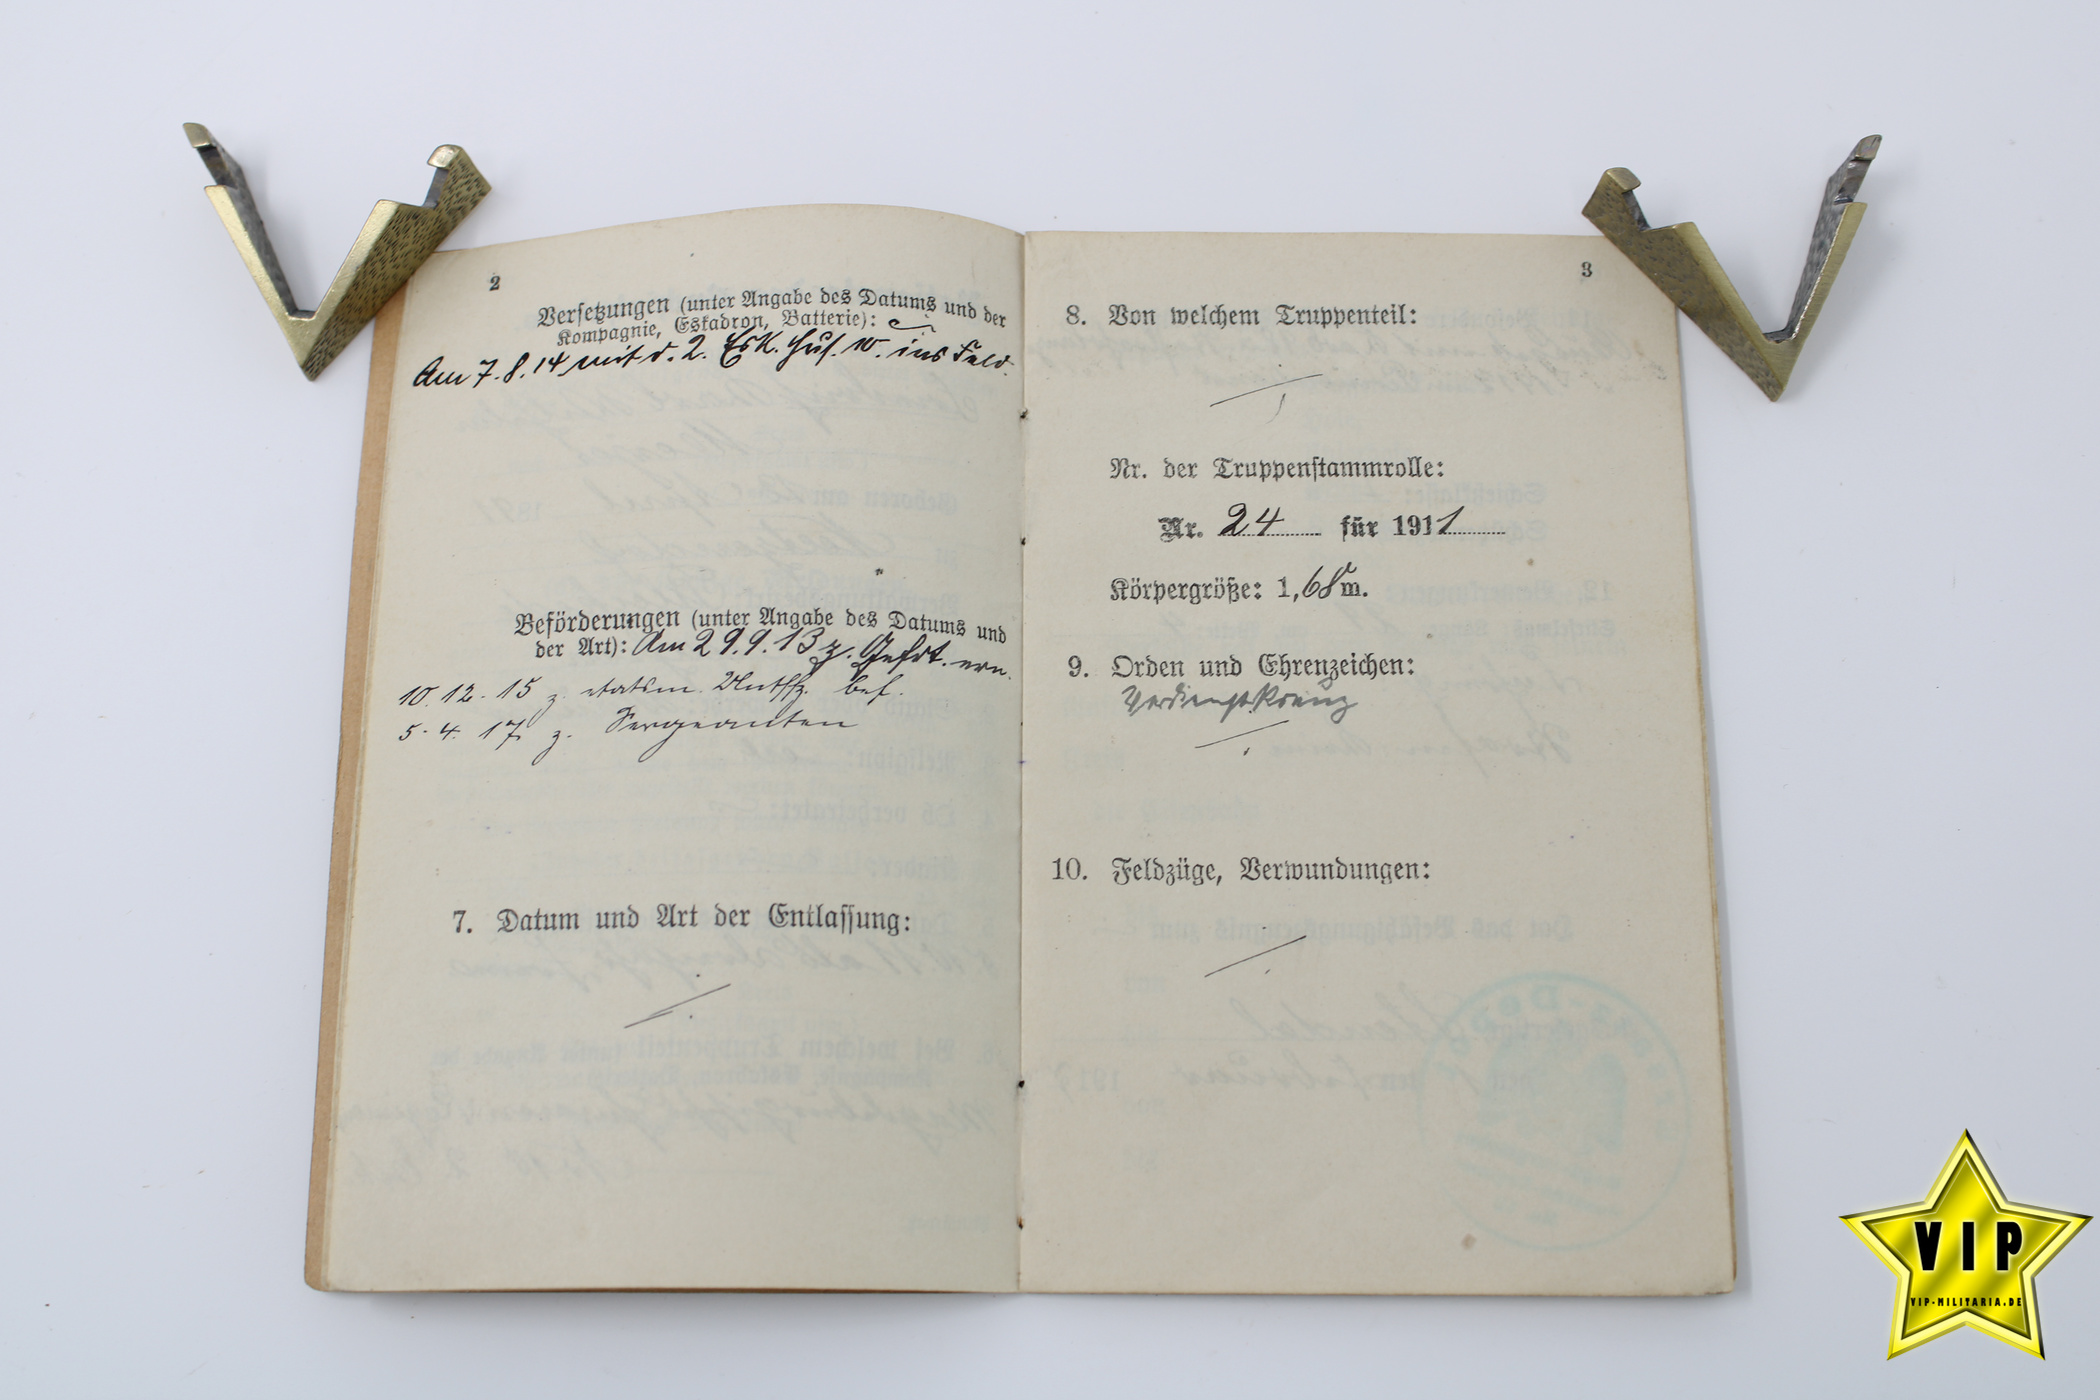 2
Versetzungen (unter Angabe des Datums und der
Kompagnie, Eskadron, Batterie):
Am 7.8.14 mit d. 2. Esk. Hus. 10. ins Feld.
Beförderungen (unter Angabe des Datums und
der Art): Am 29.9.13 z. Gefrt. ern.
10.12.15 z. etatsm. Untffz. bef.
5.4.17 z. Sergeanten
7. Datum und Art der Entlassung:
3
8. Von welchem Truppenteil:
Nr. der Truppenstammrolle:
Nr. 24 für 1911
Körpergröße: 1,68 m.
9. Orden und Ehrenzeichen:
Verdienstkreuz
10. Feldzüge, Verwundungen:
VIP
VIP-MILITARIA.DE